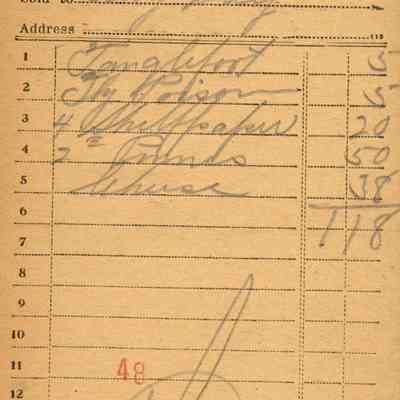 Sold to
Address
1 Tanglefoot 5
2 Fly Poison 5
3 4 Shelfpaper 20
4 2 Prunes 50
5 Cheese 38
6
7 1 18
8
9
10
11 48
12